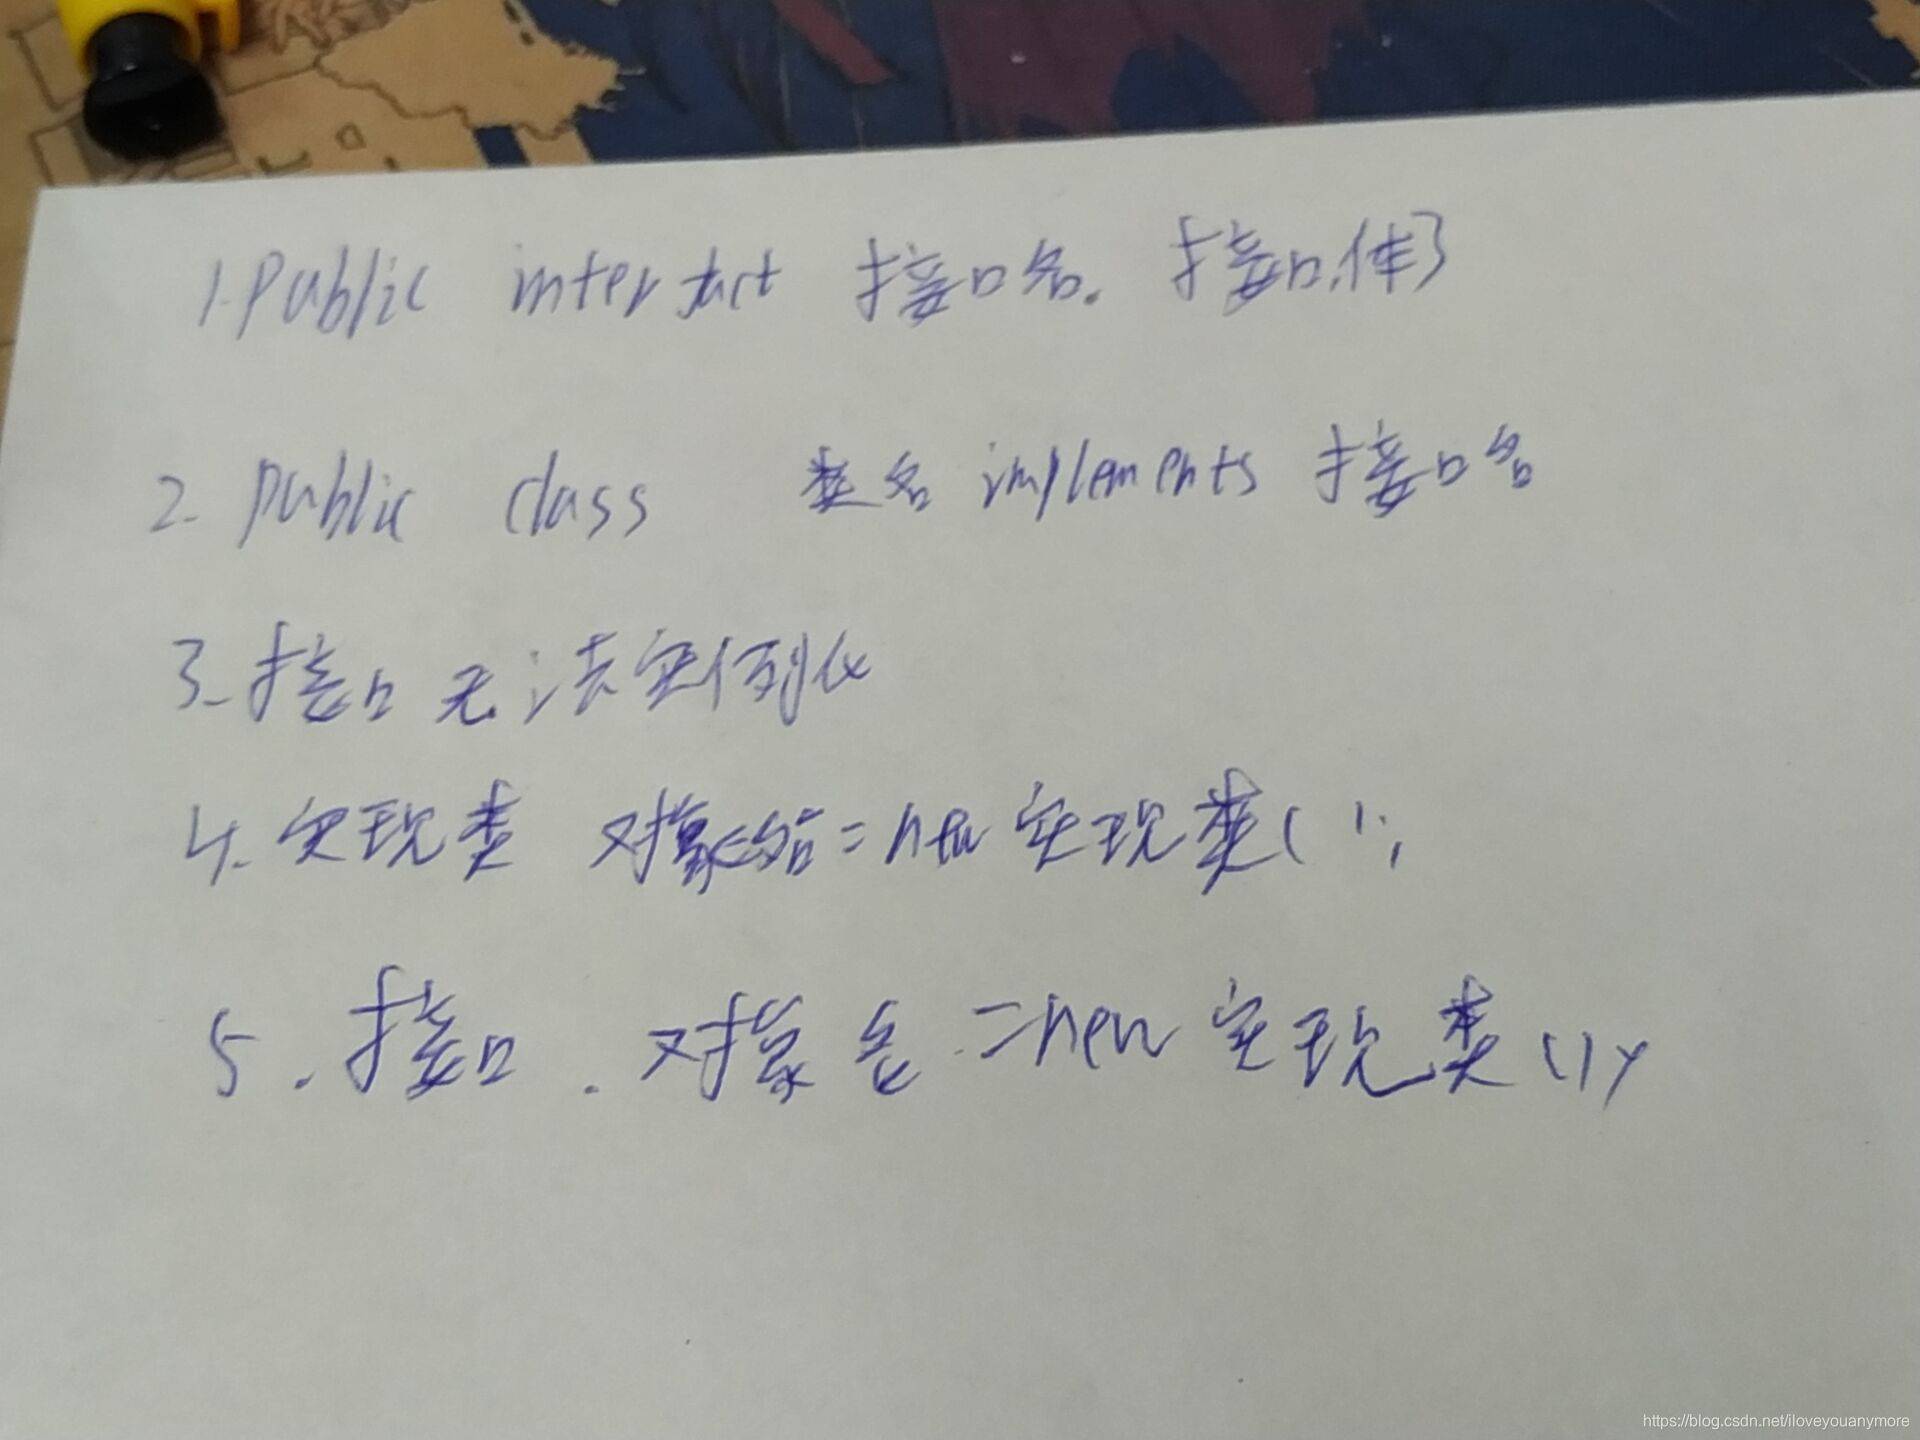 1. Public 接口名. 接口体}
2. public class 类名 implements 接口名
3. 接口无法实例化
4. 实现类 对象名=new 实现类();
5. 接口. 对象名=new 实现类();
https://blog.csdn.net/iloveyouanymore